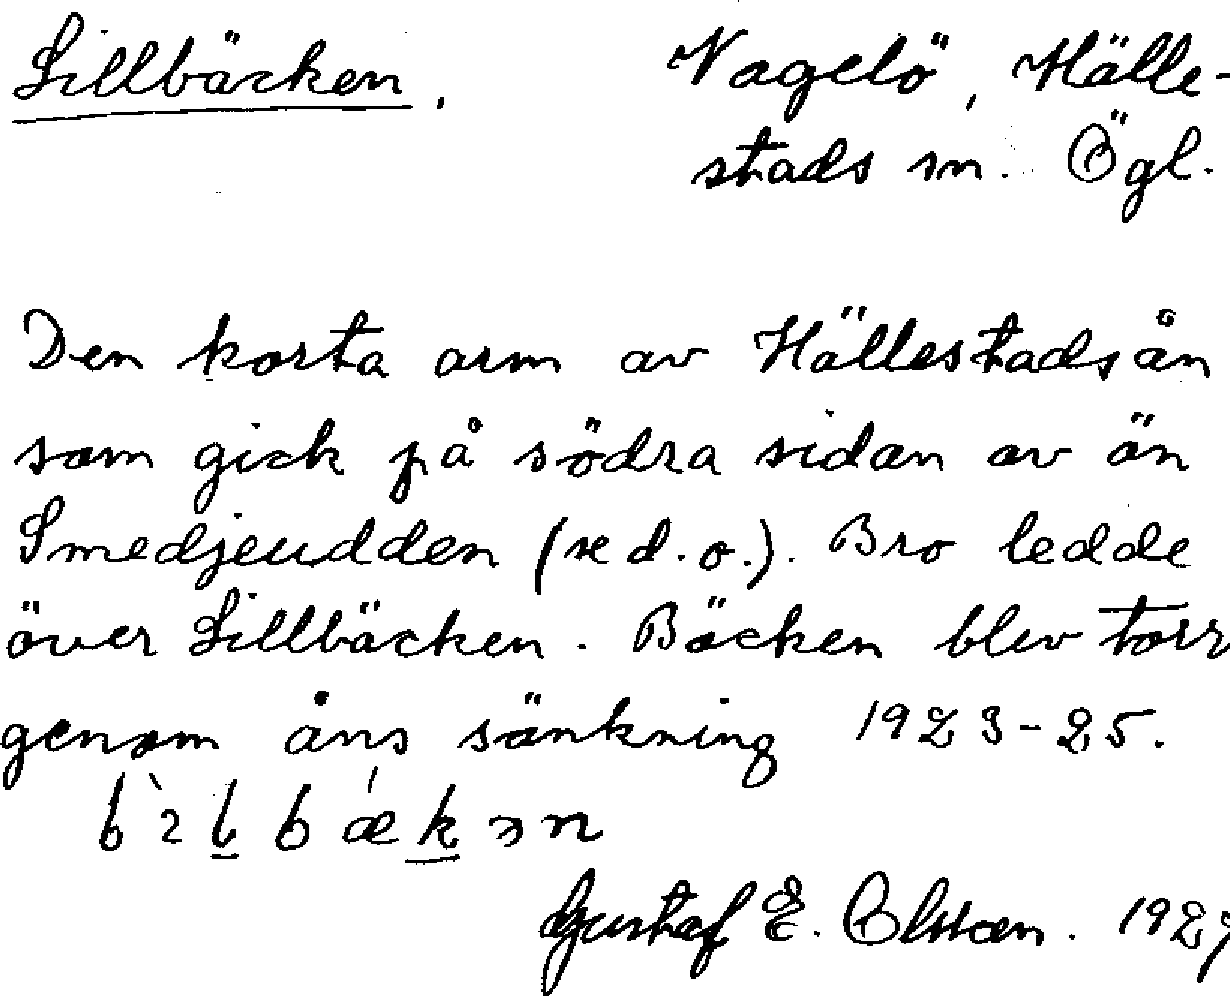 Lillbäcken. Nagelö, Hälle-
stads sn. Ögl.
Den korta arm av Hällestadsån
som gick på södra sidan av ön
Smedjeudden (se d.o.). Bro ledde
över Lillbäcken. Bäcken blev torr
genom åns sänkning 1923-25.
Gustaf E. Olsson. 1927